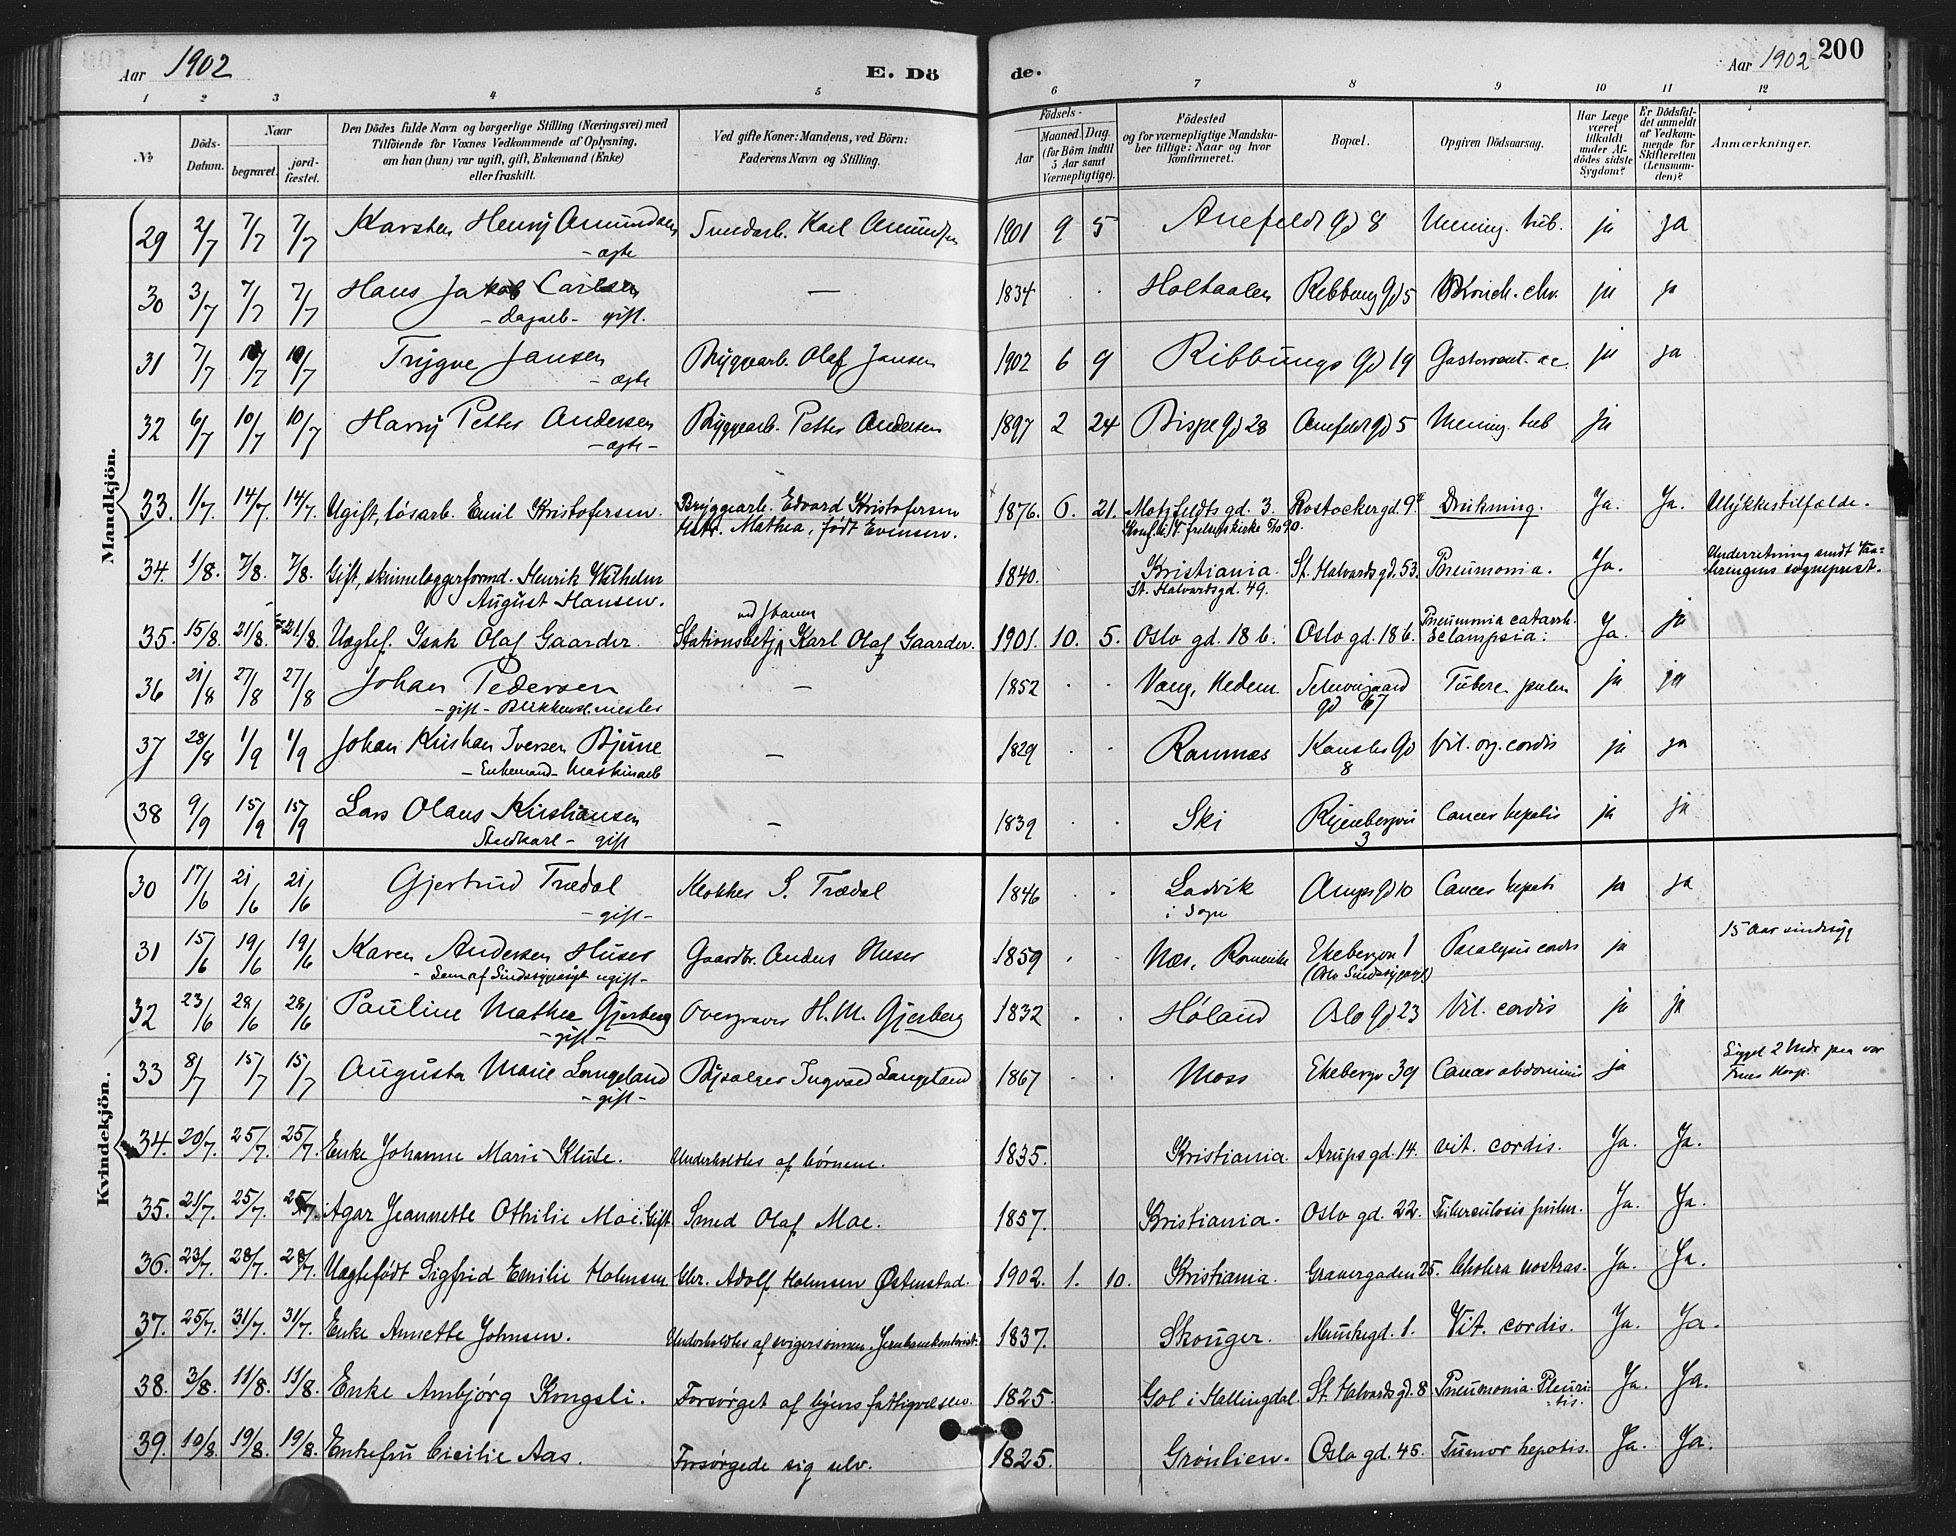 Aar 1902 E. Dö de. Aar 1902 200
1 2 3 4 5 6 7 8 9 10 11 12
№ Döds-Datum. Naar begravet. jord-fæstet. Den Dödes fulde Navn og borgerlige Stilling (Næringsvei) med Tilföiende for Voxnes Vedkommende af Oplysning, om han (hun) var ugift, gift, Enkemand (Enke) eller fraskilt. Ved gifte Koner: Mandens, ved Börn: Faderens Navn og Stilling. Födsels- Aar Maaned. Dag. (for Börn indtil 5 Aar samt Værnepligtige). Födested og for værnepligtige Mandskaber tillige: Naar og hvor konfirmeret. Bopæl. Opgiven Dödsaarsag. Har Læge været tilkaldt under Afdödes sidste Sygdom? Er Dödsfaldet anmeldt af Vedkommende for Skifteretten (Lensmanden)? Anmærkninger.
Mandkjön.
29 2/7 7/7 7/7 Karsten Henry Amundsen Karl Amundsen 1901 9 5 Arnefeldts gd 8 Mening. tub. ja ja
- ægte
30 3/7 7/7 7/7 Hans Jakob Carlsen — 1834 . . Holtaalen Ribbung gd 5 Bronch. chr. ja ja
- dagarb - gift.
31 7/7 10/7 10/7 Trygve Jansen Bryggearb. Olaf Jansen 1902 6 9 Ribbungs gd 19 ja ja
- ægte
32 6/7 10/7 10/7 Harry Petter Andersen Bryggearb. Petter Andersen 1897 2 24 Bispegd 28 Arnefeldt gd 5 Mening. tub ja
- ægte -
33. 1/7. 14/7. 14/7. Ugift, løsarb. Emil Kristofersen. Bryggearb. Edvard Kristofersen 1876. 6. 21. Motzfeldts gd. 3. Rostockergd. 9 Drukning. Ja. Ja. Ulykkestilfælde.
Hstr. Mathea, født Evensen.
34. 1/8. 7/8. 7/8. Gift, skinnelæggerformd. Henrik Wilhelm 1840. Kristiania. St. Halvardsgd. 53. Pneumonia. Ja. Underretning sendt
August Hansen. St. Halvardsgd. 49. sogneprest.
35. 15/8. 21/8. 21/8. Uægtef. Isak Olaf Gaarder. Stationsbetj. ved Karl Olaf Gaarder. 1901. 10. 5. Oslo gd. 18 b. Oslo gd. 18 b. Pneumonia catarrh. Eclampsia. Ja. ja
36 21/8 27/8 27/8 Johan Pedersen — 1852 . . Vang, Hedem. Schweigaard gd 67 Tuberc. pulm ja ja
- gift -
37 28/8 1/9 1/9 Johan Kristian Iversen Bjune — 1829 . . Ramnæs Kanslergd 8 Vit. org. cordis ja ja
- Enkemand - Maskinarb
38 9/9 15/9 15/9 Lars Olaus Kristiansen — 1839 . . Ski Ryenbergvei 3 Cancer hepatis ja ja
Stadkarl - gift
Kvindekjön.
30 17/6 21/6 21/6 Gjertrud Trædal Klokker S. Trædal 1846 . . Ladvik Arupsgd 10 Cancer hepatis ja ja
- gift - i Sogn
31 15/6 19/6 19/6 Karen Andersen Huser Gaardbr. Anders Huser 1859 . . Næs, Romerike Ekebergvn 1 Paralysis cordis ja 15 Aar sindssyg
- Lem af Sindssygeasyl ugift - (Oslo Sindssygeasyl)
32 23/6 28/6 28/6 Pauline Mathea Gjerberg Overgraver H. M. Gjerberg 1832 . . Høland Oslo gd 23 Vit. cordis ja ja
- gift -
33 8/7 15/7 15/7 Augusta Marie Langeland Bysælger Ingvald Langeland 1867 . . Moss Ekebergv 39 Cancer abdominis ja Ligget 2 Mdr paa vor Frues Hosp.
- gift -
34. 20/7. 25/7. 25/7. Enke Johanne Marie Klute. Underholdtes af børnene. 1835. Kristiania. Arupsgd. 14. vit. cordis. Ja. Ja.
35. 21/7. 25/7. 25/7. Agar Jeannette Othilie Moe. Gift. Smed Olaf Moe. 1857. Kristiania. Oslo gd. 22. Tuberculosis pulm. Ja. Ja.
36. 23/7. 28/7. 28/7. Uægtefødt Sigfrid Emilie Holmsen Adolf Holmsen Østenstad. 1902. 1. 10. Kristiania. Gravergaden 25. Cholera nostras. Ja. Ja.
37. 25/7. 31/7. 31/7. Enke Annette Johnsen. Underholdtes af svigersønnen. Jernbanekontorist. 1837. Skouger. Munkegd. 1. Vit. cordis. Ja. Ja.
38. 3/8. 11/8. 11/8. Enke Ambjørg Kongsli. Forsørget af byens fattigvæsen. 1825. Gol i Hallingdal. St. Halvardsgd. 8. Pneumonia. Pleuritis. Ja. Ja.
39. 10/8. 19/8. 19/8. Enkefru Cicilie Aas. Forsørgede sig selv. 1825. Grønlien. Oslo gd. 45. Tumor hepatis. Ja. Ja.